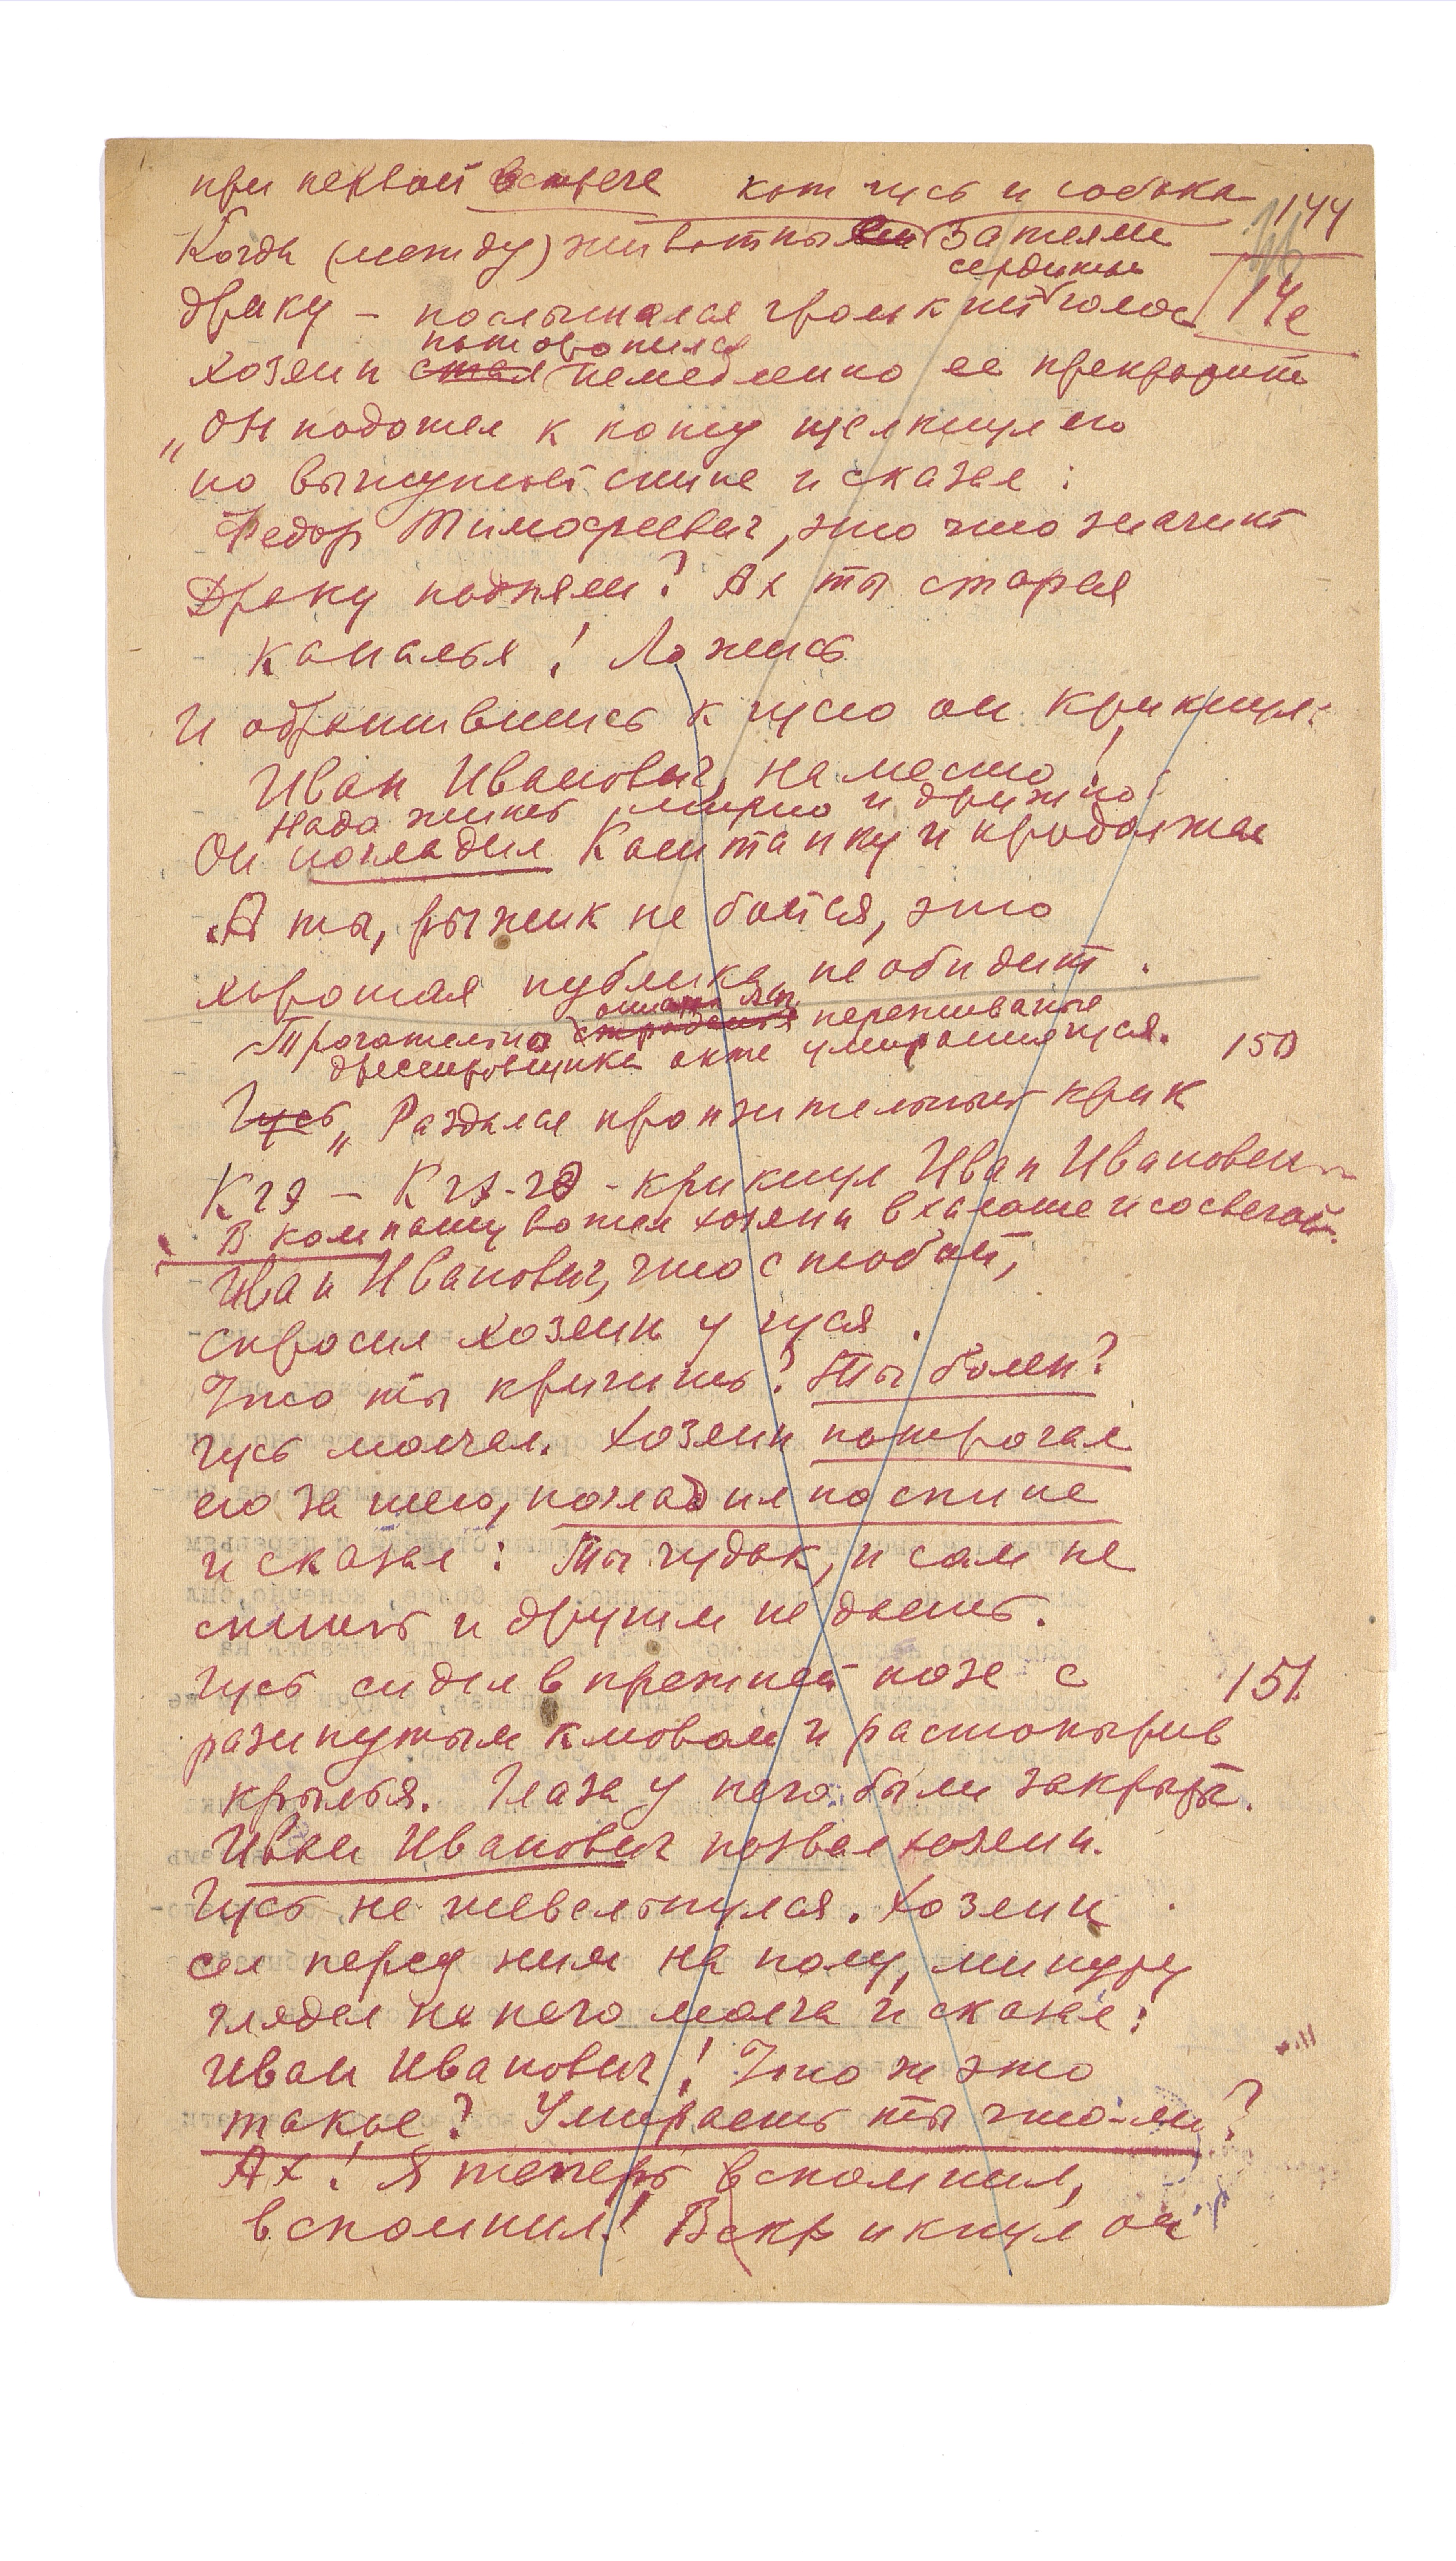 при первой встрече кот гусь и собака
144
Когда (между) животными затеяли
сердитый
14е
драку – послышался громкий голос
поторопился
хозяин стал немедленно ее прекратить
„Он подошел к коту щелкнул его
по выгнутой спине и сказал:
Федор Тимофеевич, это что значит
Драку подняли? Ах ты старая
каналья! Ложись
И обратившись к гусю он крикнул:
Иван Иванович, на место!
Надо жить мирно и дружно.
Он погладил Каштанку и продолжал
А ты, рыжик не бойся, это
хорошая публика, не обидит.
Трогательно страдания переживание
дрессировщика умирания гуся.
150
Гусь „Раздался пронзительный крик
Кгэ – Кгэ-гэ - крикнул Иван Иванович
В комнату вошел хозяин в халате и со свечой.
Иван Иванович, что с тобой,
спросил хозяин у гуся.
Что ты кричишь? Ты болен?
Гусь молчал. Хозяин потрогал
его за шею, погладил по спине
и сказал: Ты чудак, и сам не
спишь и другим не даешь.
Гусь сидел в прежней позе с
151.
разинутым клювом и растопырив
крылья. Глаза у него были закрыты.
Иван Иванович позвал хозяин.
Гусь не шевельнулся. Хозяин
сел перед ним на полу, минуту
глядел на него молча и сказал:
Иван Иванович! Что ж это
такое? Умираешь ты что-ли?
Ах! Я теперь вспомнил,
вспомнил! Вскрикнул он